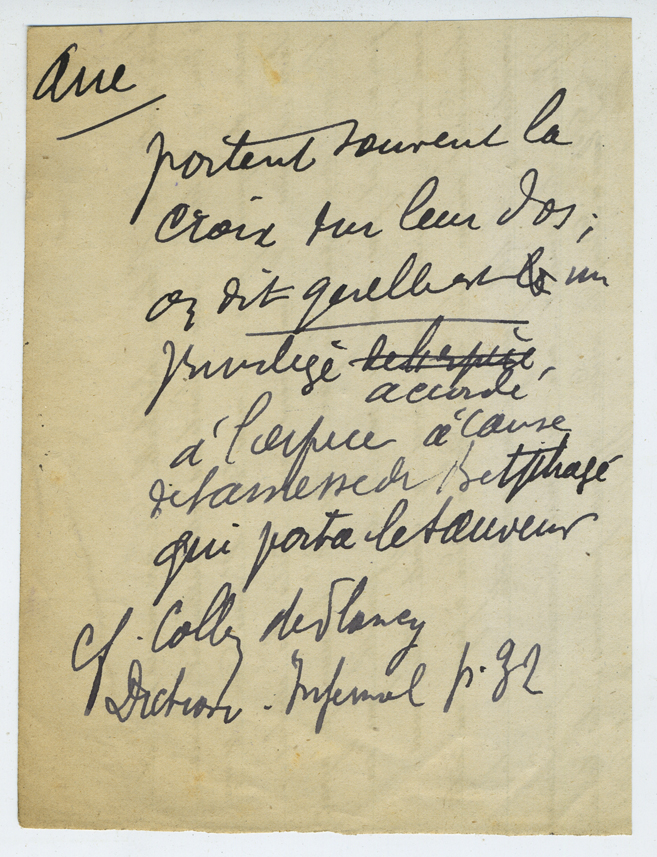 Ane
portent souvent la
croix sur leur dos ;
on dit qu'elle est un
privilège de l'espèce,
accordé
à l'espèce à cause
de l'anesse de Betphagé
qui porta le sauveur
cf. Collin de Plancy
Diction. Infernal p. 32